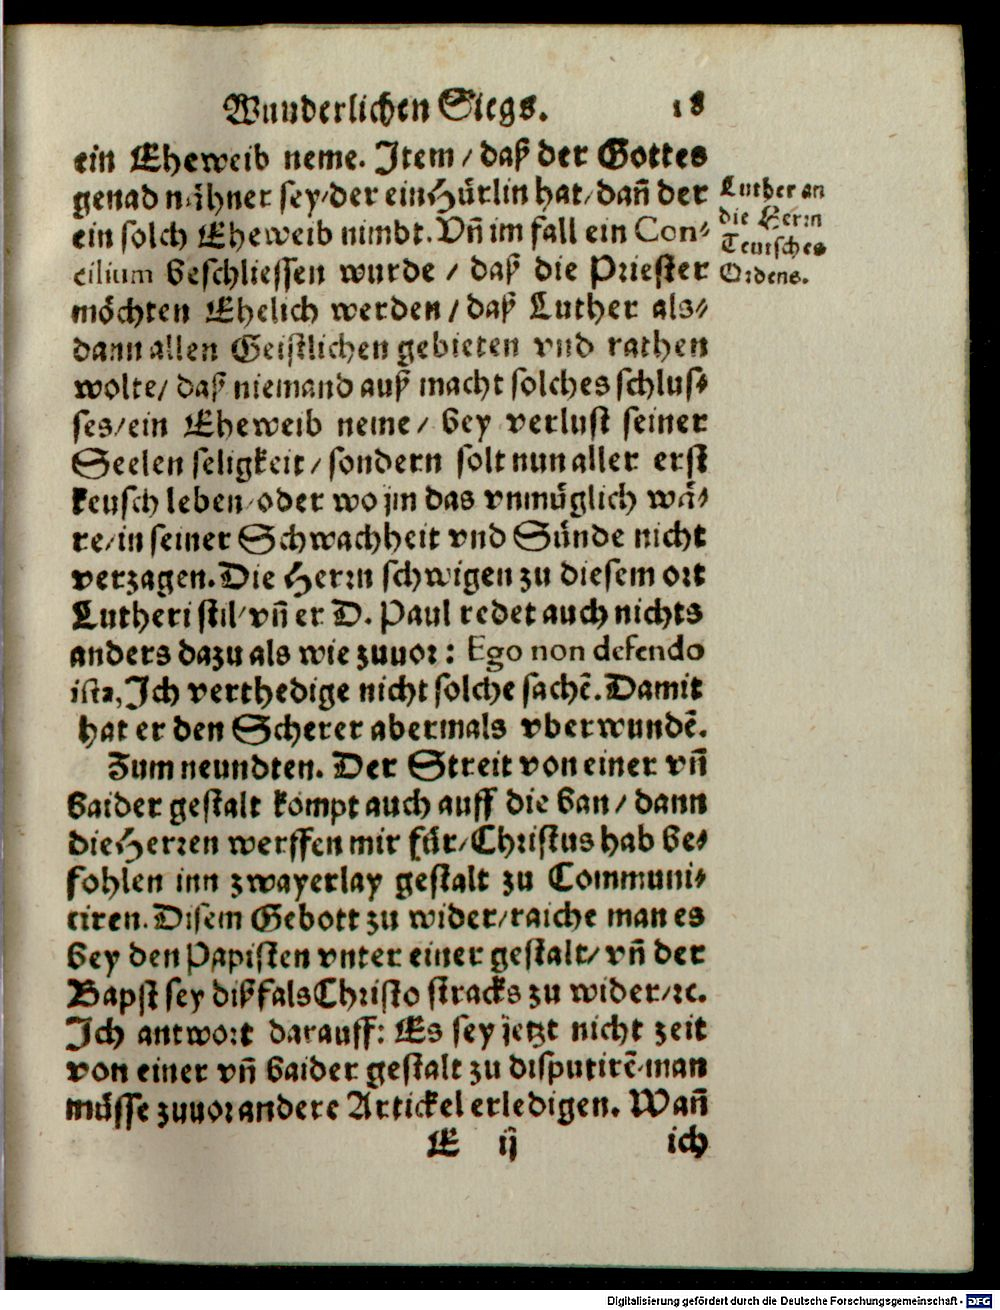 Wunderlichen Siegs. 18
ein Eheweib neme. Item / daß der Gottes
genad nåhner sey/der ein Hůrlin hat/dañ der
ein solch Eheweib nimbt. Vñ im fall ein Con⸗
cilium beschliessen wurde / daß die Priester
möchten Ehelich werden / daß Luther als⸗
dann allen Geistlichen gebieten vnd rathen
wolte/ daß niemand auß macht solches schlus⸗
ses/ein Eheweib neme/ bey verlust seiner
Seelen seligkeit/sondern solt nun aller erst
keusch leben/oder wo jm das vnmüglich wä⸗
re/in seiner Schwachheit vnd Sünde nicht
verzagen. Die Herrn schwigen zu diesem ort
Lutheri stil/vñ er D. Paul redet auch nichts
anders dazu als wie zuuor: Ego non defendo
ista, Ich verthedige nicht solche sachē. Damit
hat er den Scherer abermals vberwundē.
Zum neundten. Der Streit von einer vñ
baider gestalt kompt auch auff die ban/ dann
die Herren werffen mir für/Christus hab be⸗
fohlen inn zwayerlay gestalt zu Communi⸗
ciren. Disem Gebott zu wider/raiche man es
bey den Papisten vnter einer gestalt/ vñ der
Bapst sey dißfals Christo stracks zu wider/ꝛc.
Ich antwort darauff: Es sey jetzt nicht zeit
von einer vñ baider gestalt zu disputirē/man
müsse zuuor andere Artickel erledigen. Wañ
E ij ich
Luther an
die Herrn
Teutsches
Ordens.
Digitalisierung gefördert durch die Deutsche Forschungsgemeinschaft - DFG